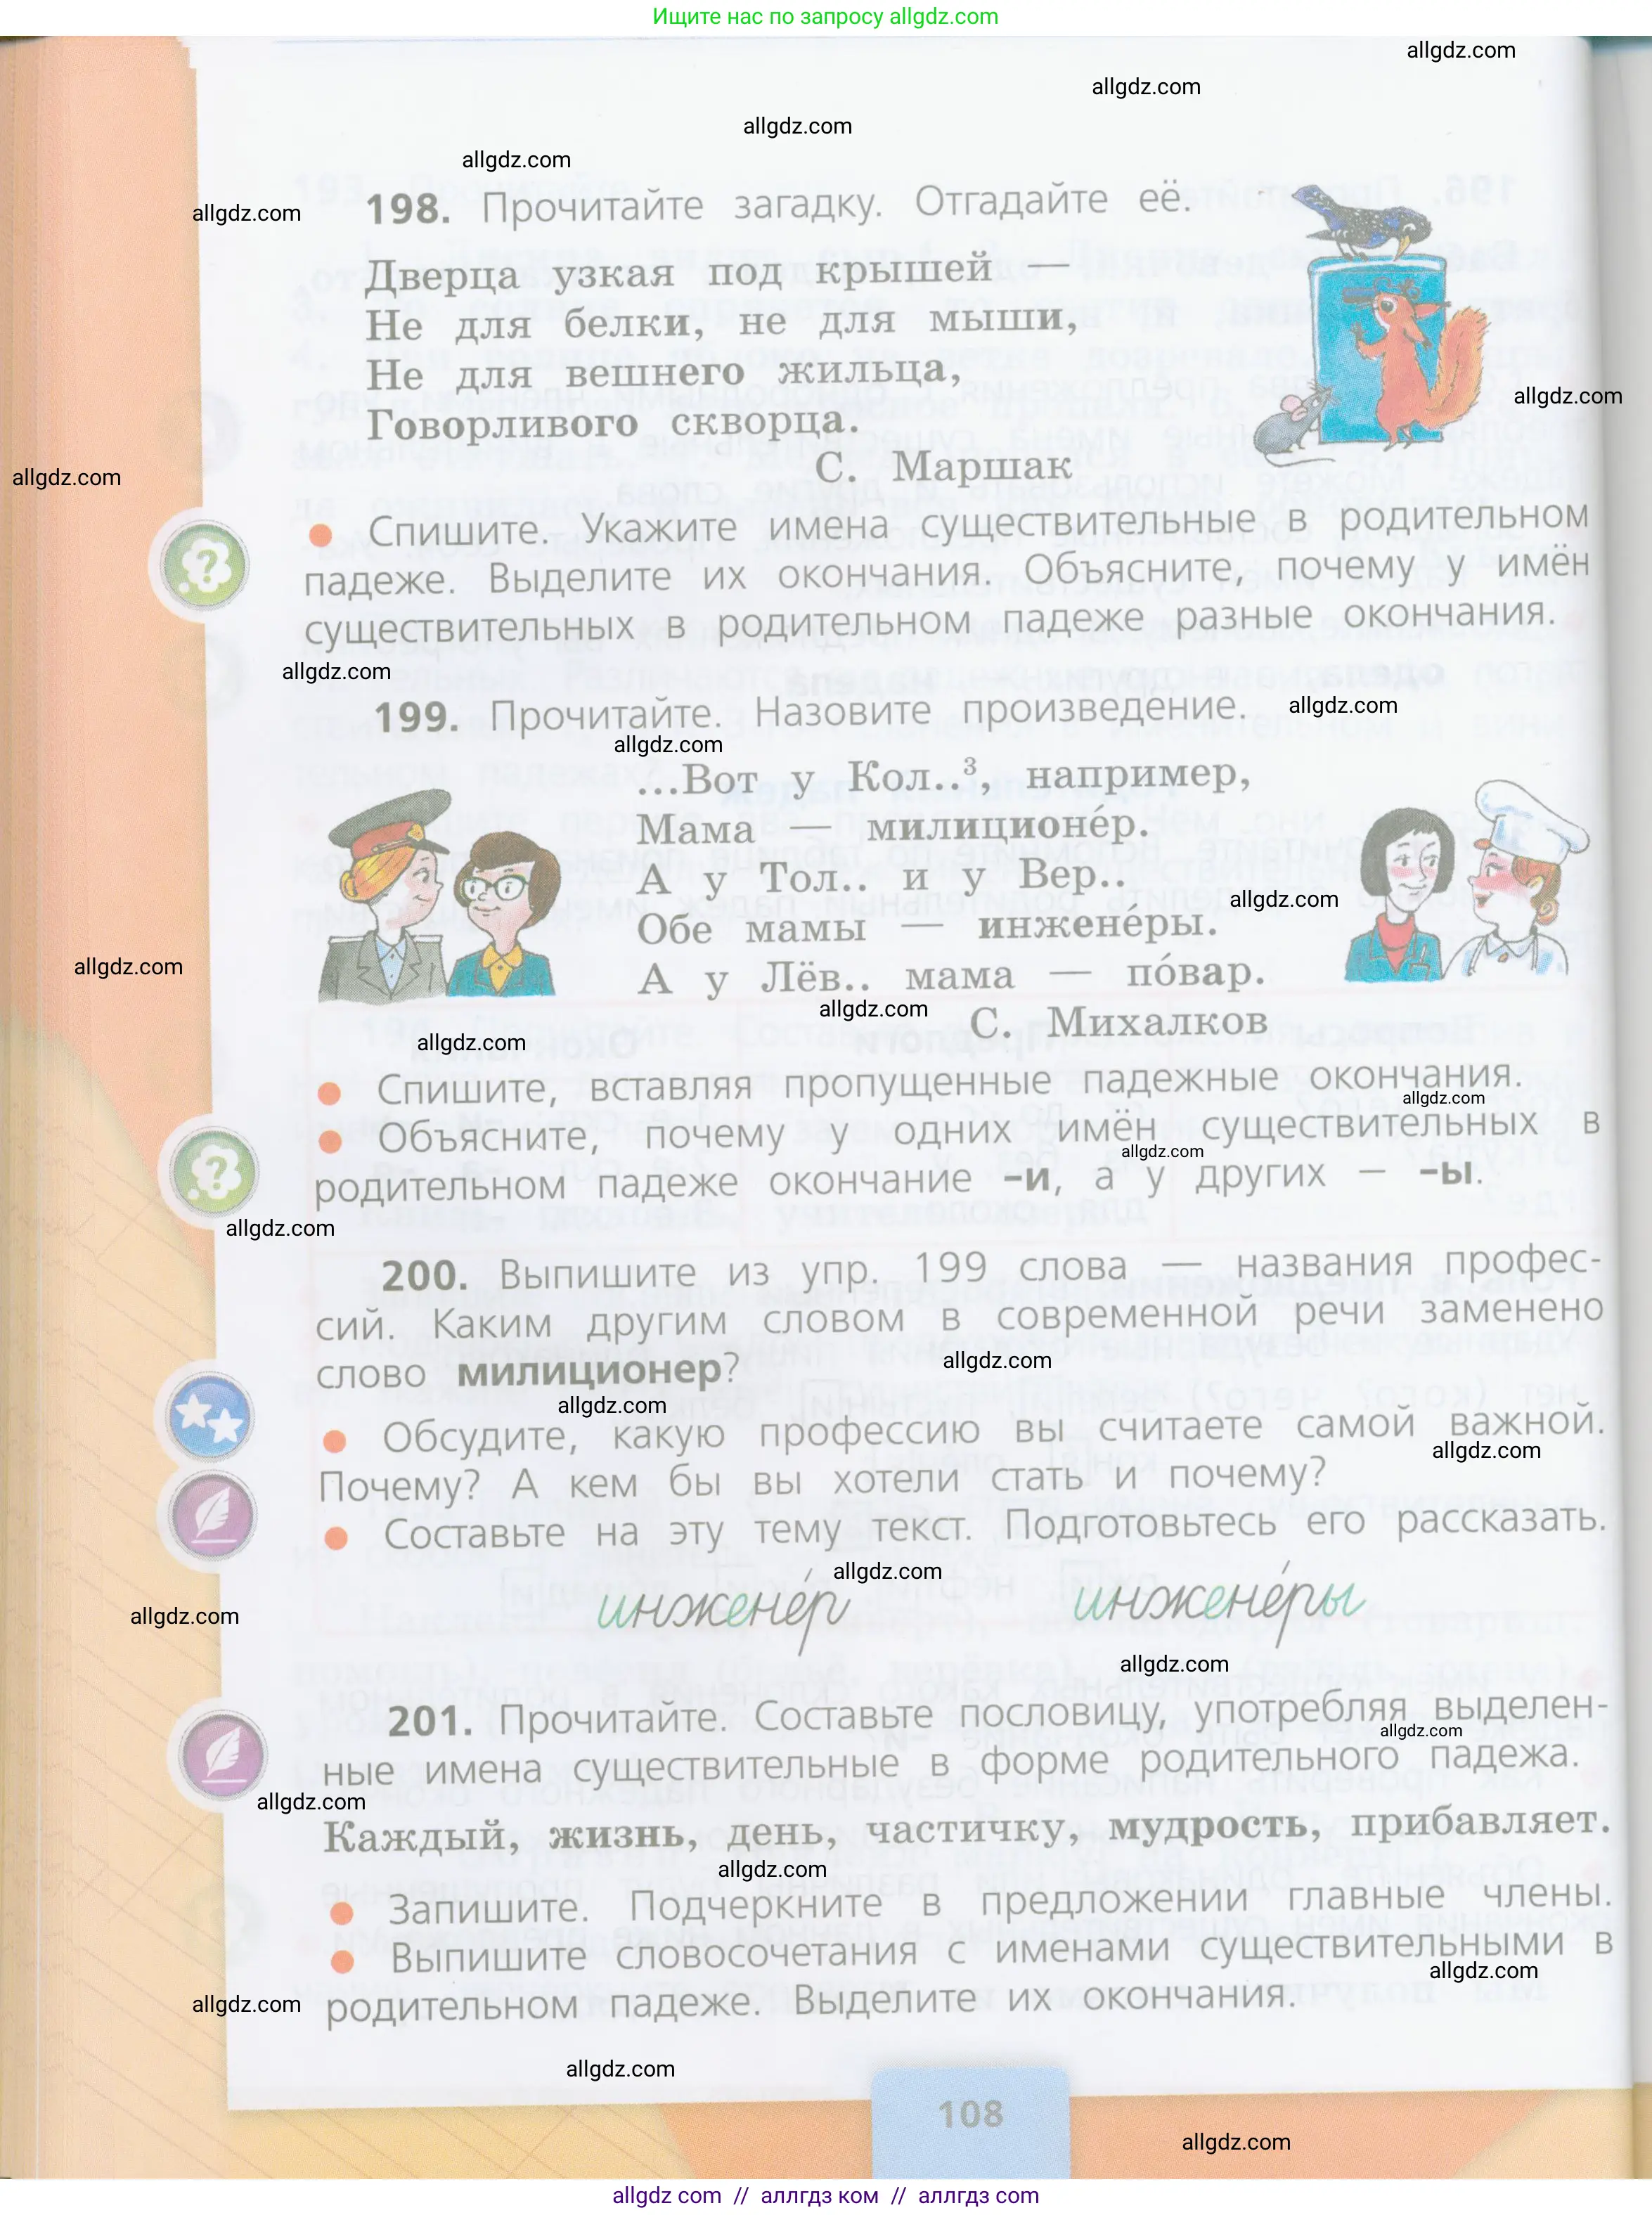 Ищите нас по запросу allgdz.com
allgdz.com
allgdz.com
allgdz.com
allgdz.com
allgdz.com
198. Прочитайте загадку. Отгадайте её.
Дверца узкая под крышей —
Не для белки, не для мыши,
Не для вешнего жильца,
allgdz.com
Говорливого скворца.
С. Маршак
allgdz.com
• Спишите. Укажите имена существительные в родительном
падеже. Выделите их окончания. Объясните, почему у имён
существительных в родительном падеже разные окончания.
allgdz.com
199. Прочитайте. Назовите произведение.
allgdz.com
allgdz.com
...Вот у Кол..³, например,
Мама — милиционе́р.
А у Тол.. и у Вер..
allgdz.com
Обе мамы — инжене́ры.
allgdz.com
А у Лёв.. мама — по́вар.
allgdz.com
С. Михалков
allgdz.com
• Спишите, вставляя пропущенные падежные окончания.
allgdz.com
• Объясните, почему у одних имён существительных в
allgdz.com
родительном падеже окончание -и, а у других — -ы.
allgdz.com
200. Выпишите из упр. 199 слова — названия профес-
сий. Каким другим словом в современной речи заменено
слово милиционер?
allgdz.com
allgdz.com
• Обсудите, какую профессию вы считаете самой важной.
allgdz.com
Почему? А кем бы вы хотели стать и почему?
• Составьте на эту тему текст. Подготовьтесь его рассказать.
allgdz.com
инжене́р инжене́ры
allgdz.com
allgdz.com
201. Прочитайте. Составьте пословицу, употребляя выделен-
allgdz.com
ные имена существительные в форме родительного падежа.
allgdz.com
Каждый, жизнь, день, частичку, мудрость, прибавляет.
allgdz.com
• Запишите. Подчеркните в предложении главные члены.
• Выпишите словосочетания с именами существительными в
allgdz.com
родительном падеже. Выделите их окончания.
allgdz.com
allgdz.com
108
allgdz.com
allgdz com // аллгдз ком // аллгдз com